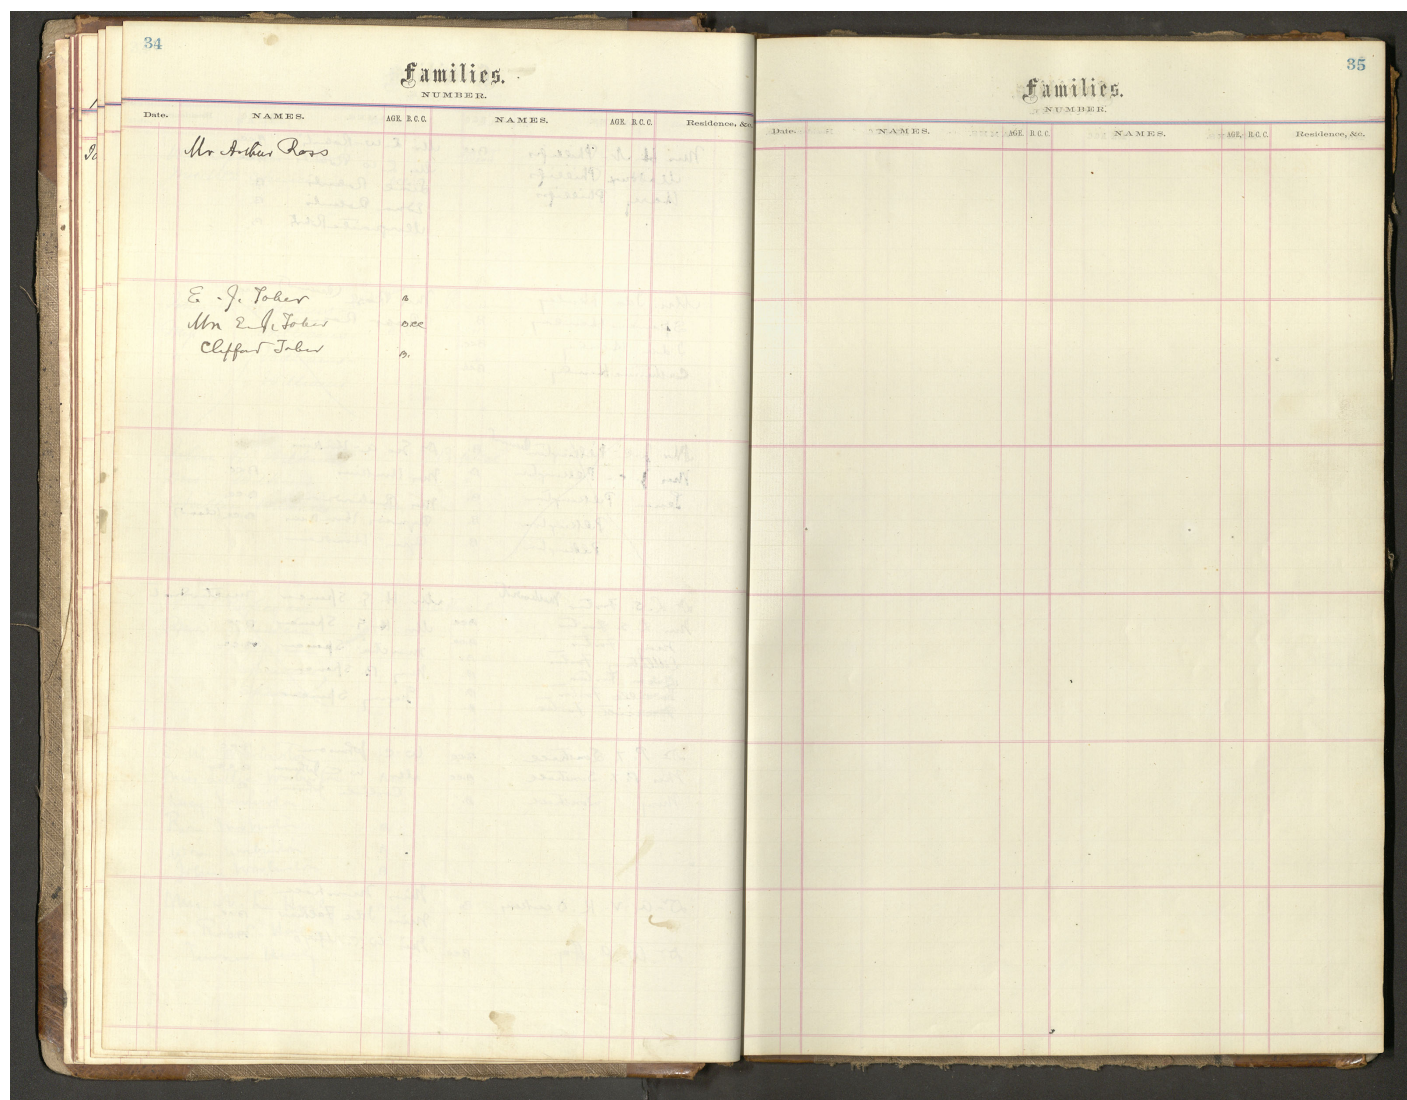 34
Families.
NUMBER.
Date. NAMES. AGE. B.C.C. NAMES. AGE. B.C.C. Residence, &c.
Mr Arthur Ross
E. J. Tober B
Mrs E. J. Tober BCC
Clifford Tober B.
35
Families.
NUMBER.
Date. NAMES. AGE. B.C.C. NAMES. AGE. B.C.C. Residence, &c.